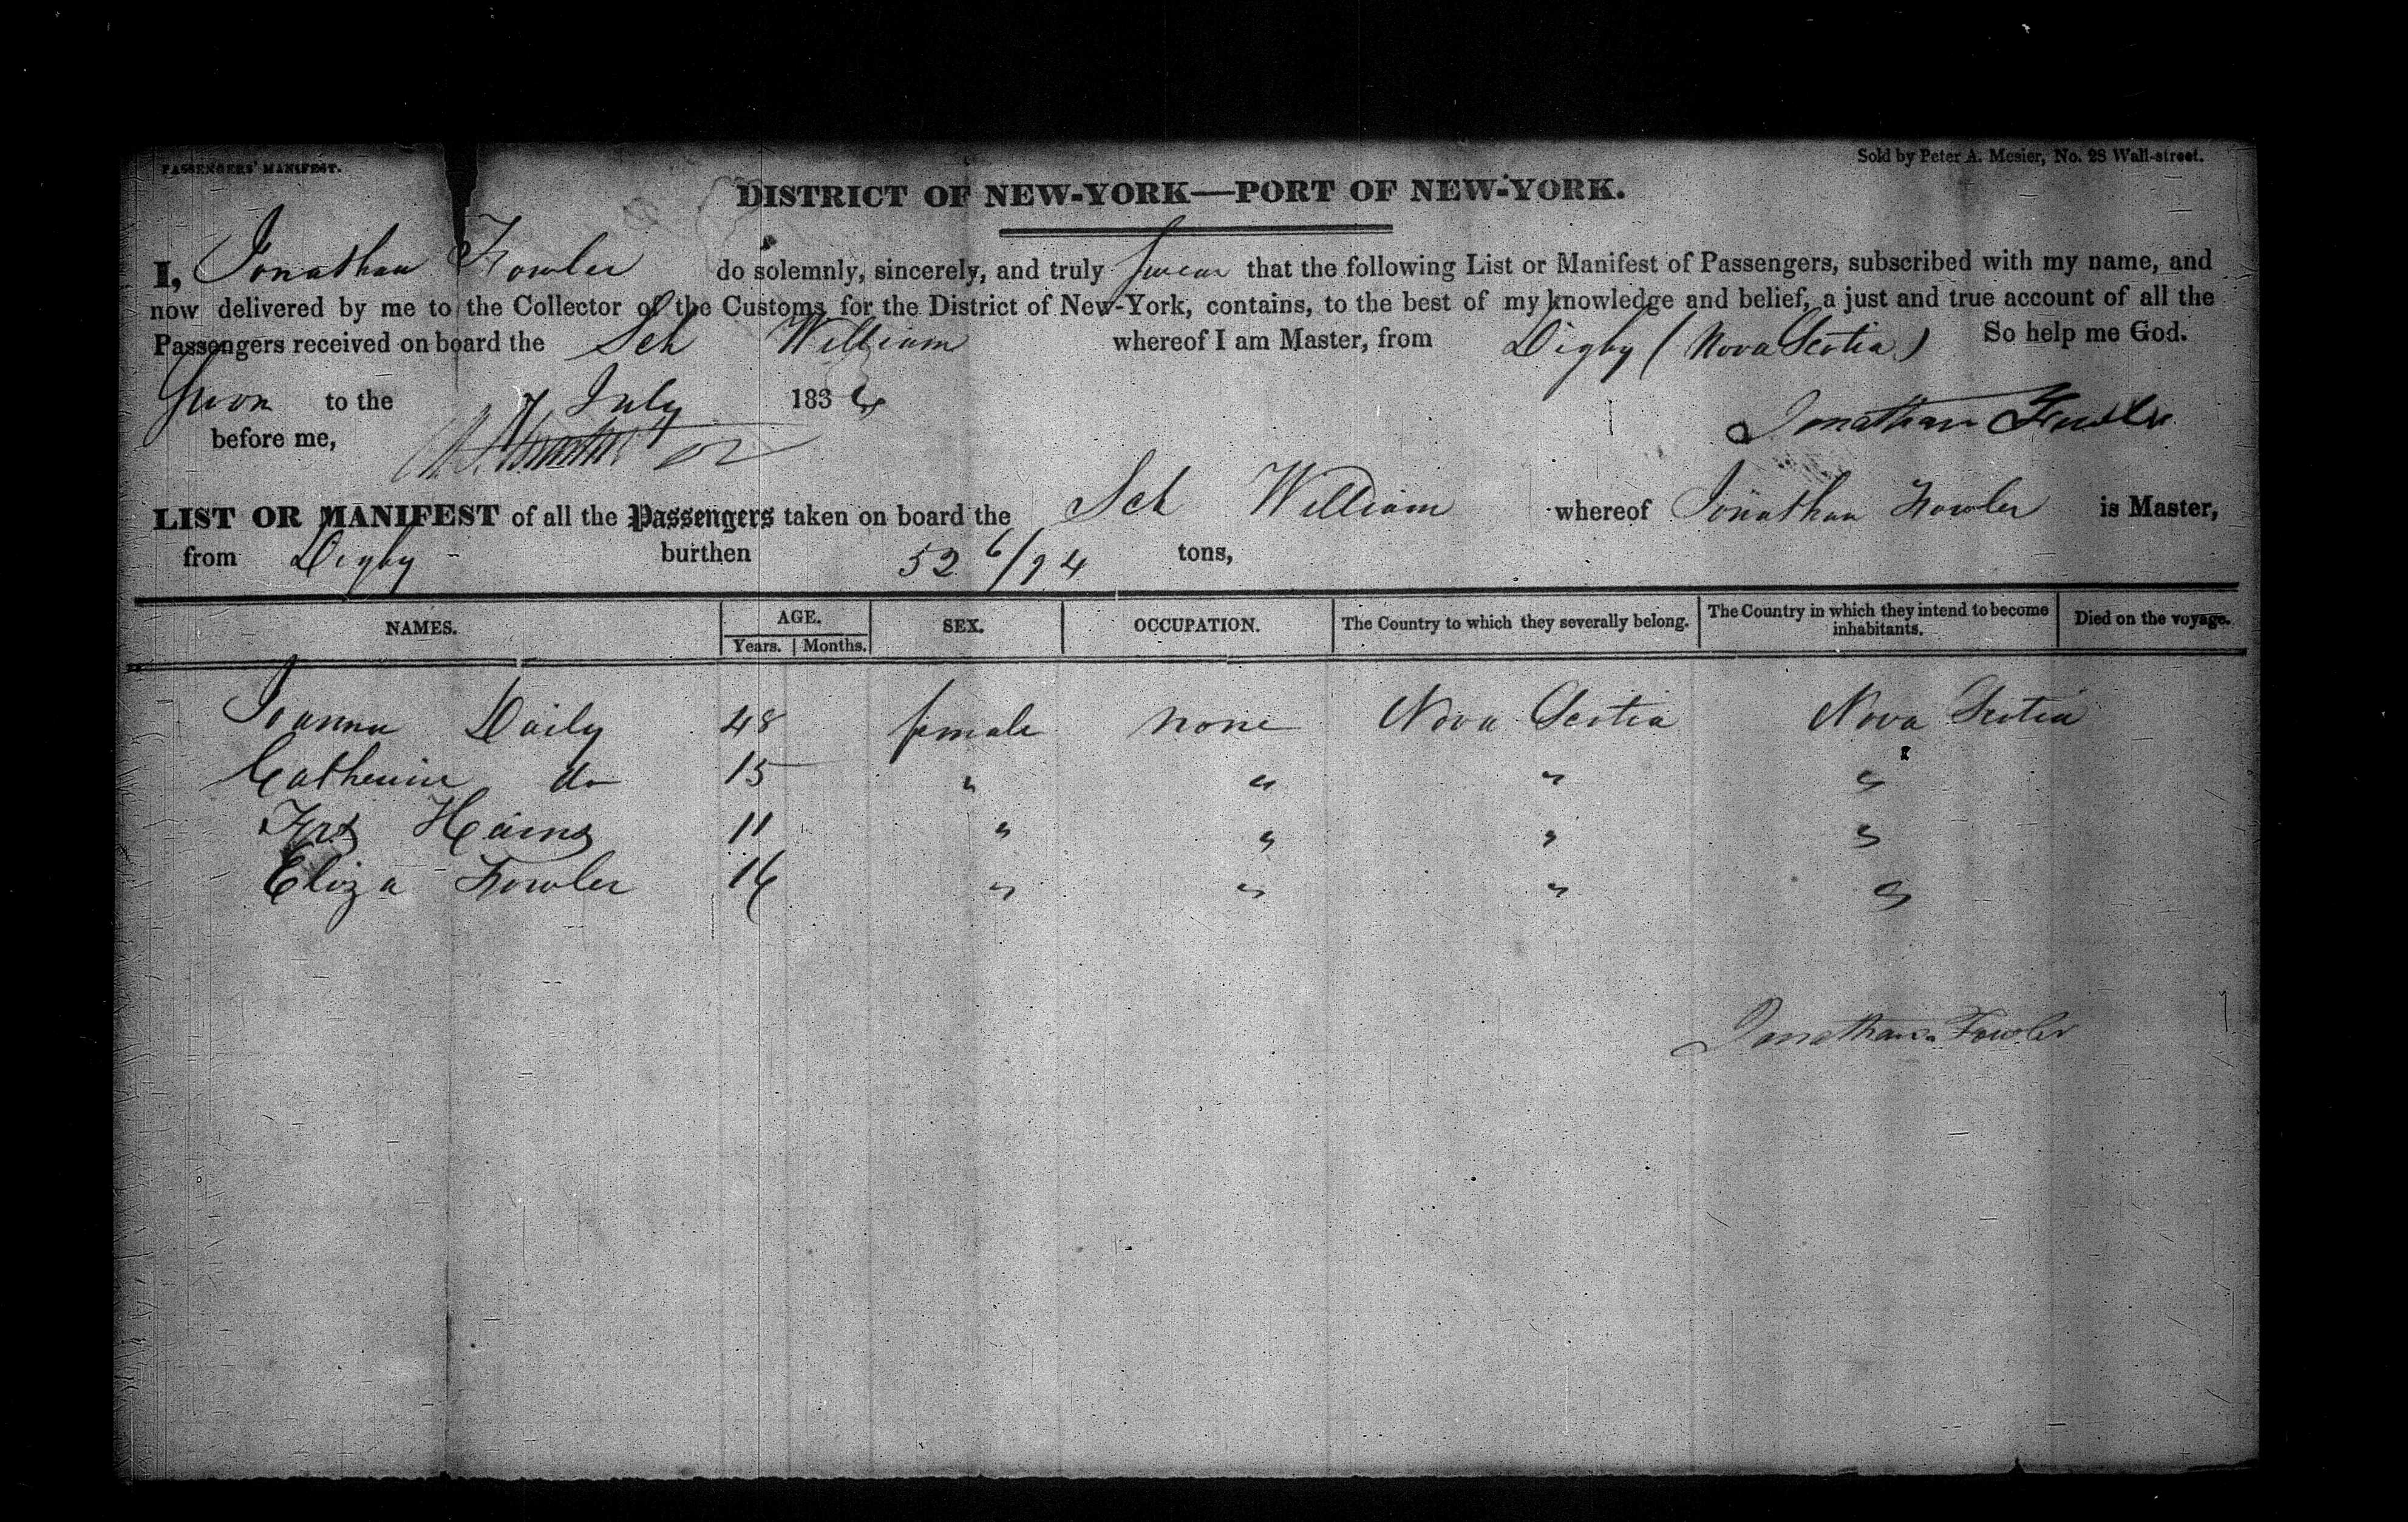 PASSENGERS' MANIFEST.
Sold by Peter A. Mesier, No. 28 Wall-street.
DISTRICT OF NEW-YORK—PORT OF NEW-YORK.
I, Jonathan Fowler do solemnly, sincerely, and truly swear that the following List or Manifest of Passengers, subscribed with my name, and
now delivered by me to the Collector of the Customs for the District of New-York, contains, to the best of my knowledge and belief, a just and true account of all the
Passengers received on board the Sch William whereof I am Master, from Digby (Nova Scotia) So help me God.
Sworn to the 7 July 1836
Jonathan Fowler
before me,
LIST OR MANIFEST of all the Passengers taken on board the Sch William whereof Jonathan Fowler is Master,
from Digby burthen 52 6/94 tons,
NAMES. AGE. Years. Months. SEX. OCCUPATION. The Country to which they severally belong. The Country in which they intend to become inhabitants. Died on the voyage.
Joanna Daily 48 female none Nova Scotia Nova Scotia
Catherine do 15 " " " "
Hains 11 " " " "
Eliza Fowler 16 " " " "
Jonathan Fowler